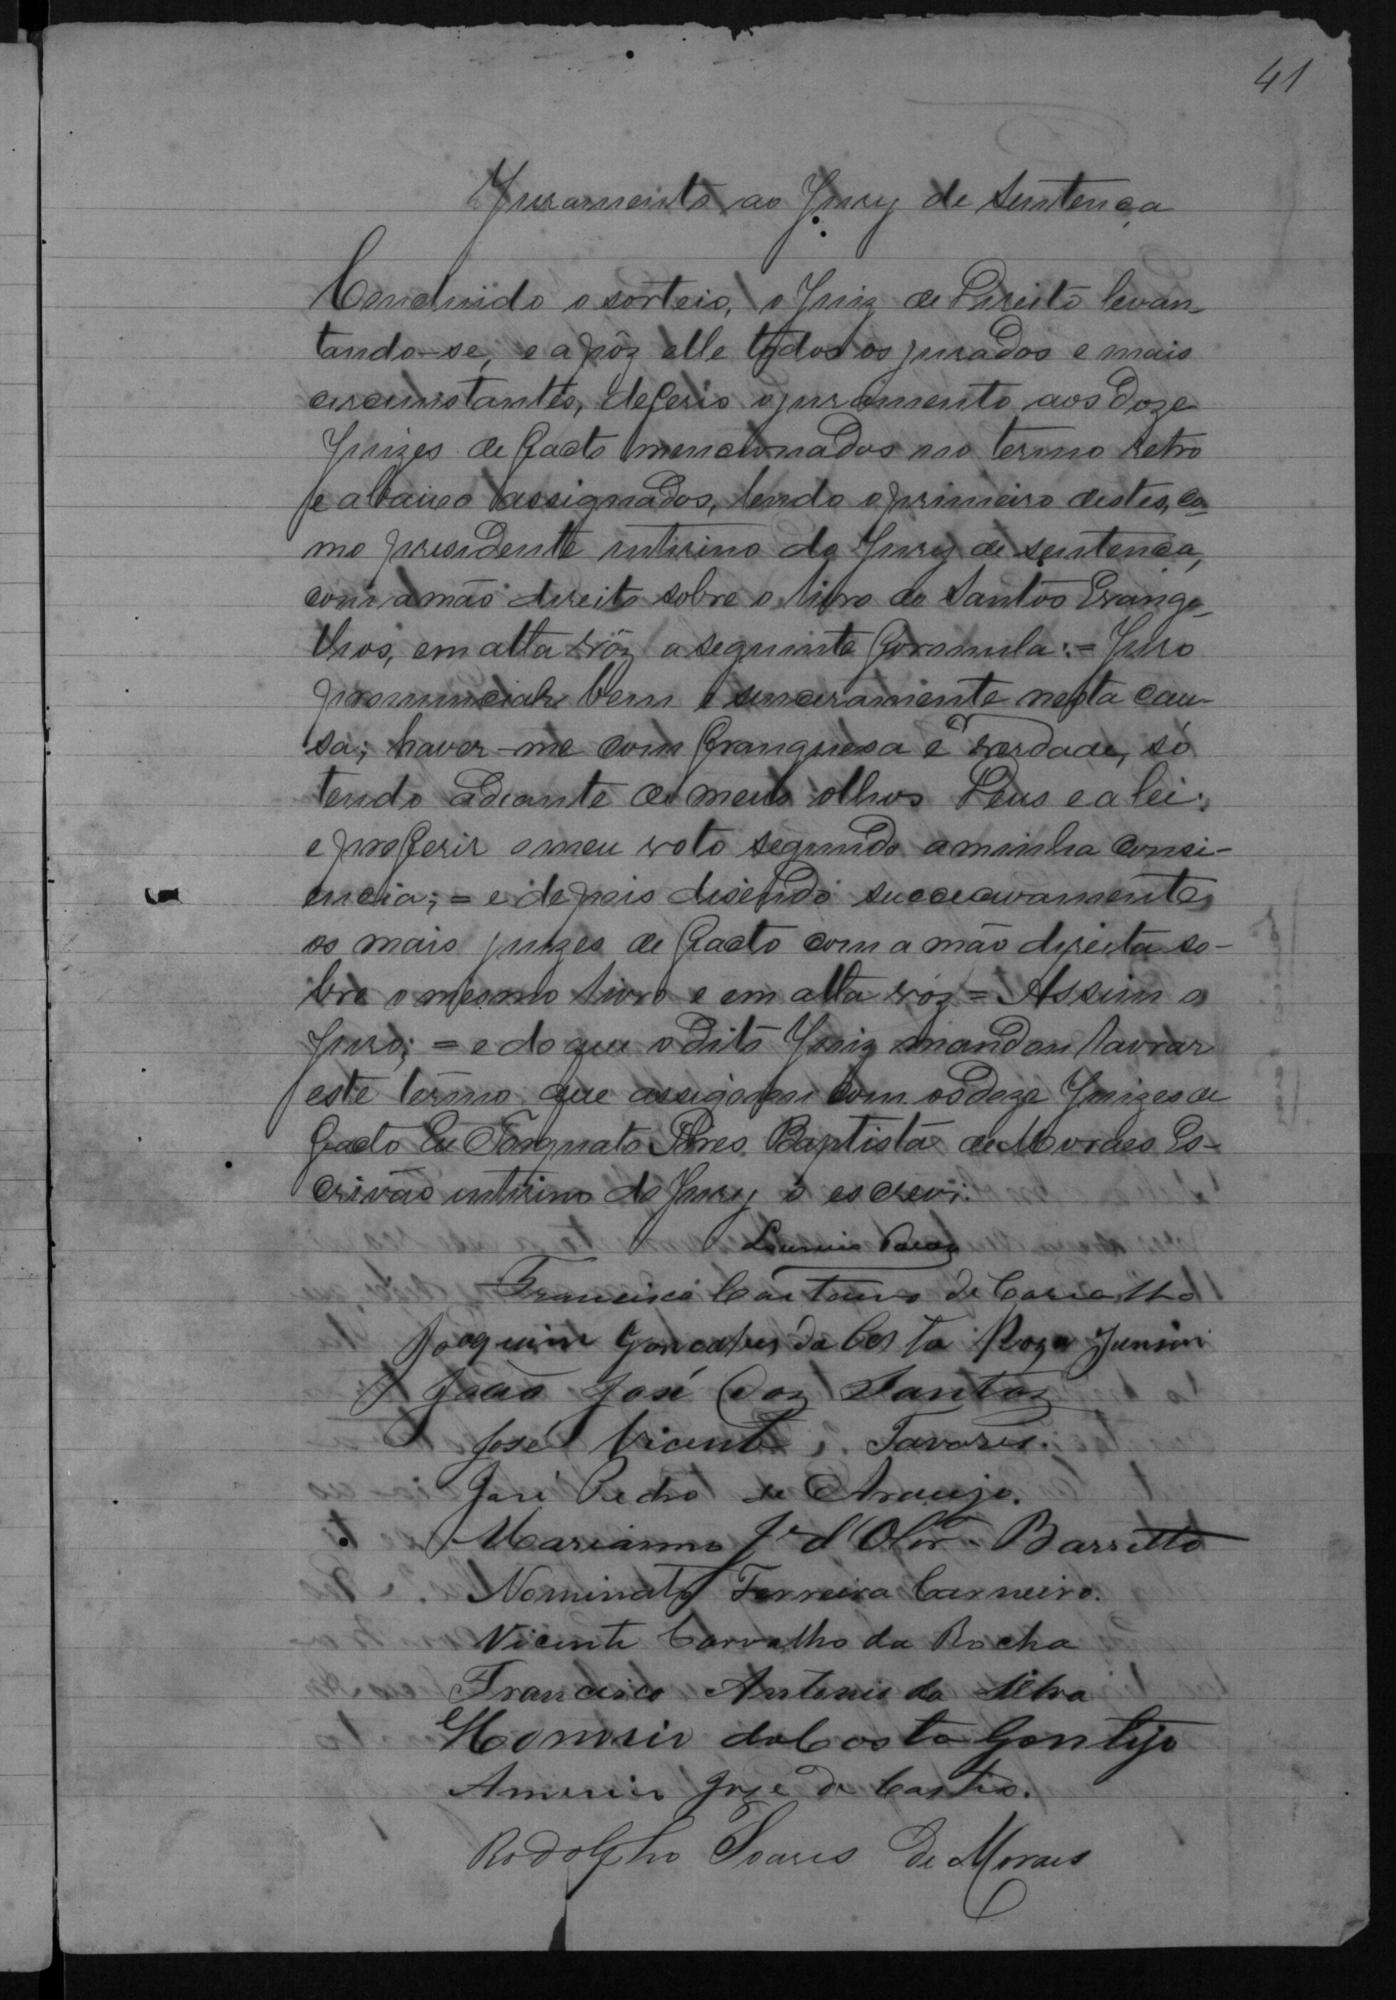 41
Juramento ao Jury de Sentença
Concluido o sorteio, o Juiz de Direito levan-
tando-se, e apôz elle todos os jurados e mais
circunstantes, deferio o juramento aos doze
Juizes de facto mencionados no termo retro
e abaixo assignados, lendo o primeiro destes, co-
mo presidente interino do Jury de sentença,
com a mão direita sobre o livro do Santos Evange-
lhos, em alta vóz a seguinte formula:= Juro
pronunciar bem e sinceramente nesta cau-
sa; haver-me com franquesa e verdade, só
tendo adiante de meus olhos Deus e a lei;
e proferir o meu voto segundo a minha consci-
encia; = e depois disendo successivamente
os mais juizes de facto com a mão direita so-
bre o mesmo livro e em alta vóz = Assim o
Juro; = e do que o dito Juiz mandou lavrar
este termo que assignou com os doze Juizes de
facto Eu Torquato Pires Baptista de Moraes Es-
crivão interino do Jury o escrevi.
Francisco Caetano de Carvalho
Joaquim Goncalves da Costa Roza Junior
João José Doz Santoz
José Vicente Tavares.
José Pedro de Araujo.
Marianno Je d'Olivra Barretto
Nominato Ferreira Carneiro.
Vicente Carvalho da Rocha
Francisco Antonio da Silva
Honorio da Costa Gontijo
Americo Jose de Castro.
Rodolpho Soares de Moraes